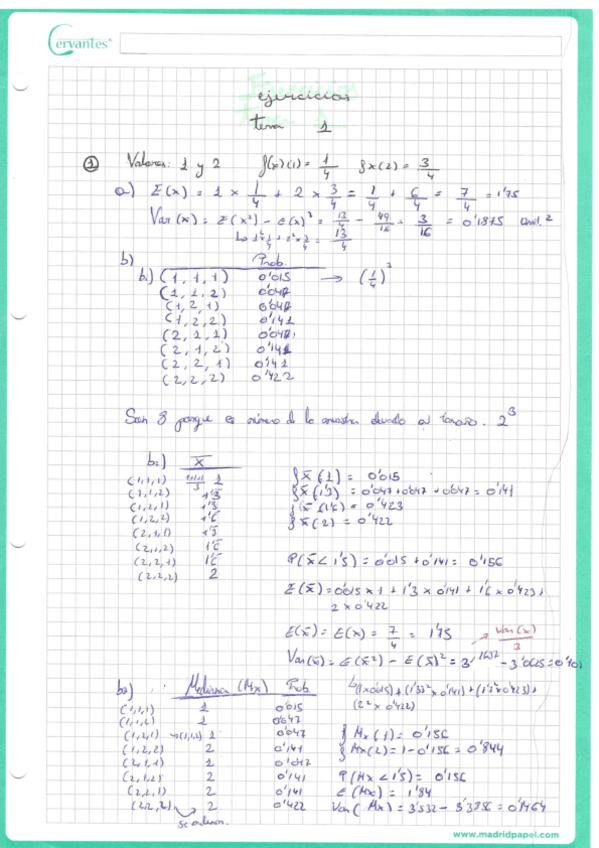 Cervantes®
ejercicios
tema 1
① Valores: 1 y 2 f(x)(1) = 1/4 fx(2) = 3/4
a) E(x) = 1 × 1/4 + 2 × 3/4 = 1/4 + 6/4 = 7/4 = 1'75
Var(x) = E(x²) - E(x)² = 13/4 - 49/16 = 3/16 = 0'1875
1² 1/4 + 2² × 3/4 = 13/4
b) Prob.
b₁) (1,1,1) 0'015 → (1/4)³
(1,1,2) 0'047
(1,2,1) 0'047
(1,2,2) 0'141
(2,1,1) 0'047
(2,1,2) 0'141
(2,2,1) 0'141
(2,2,2) 0'422
Son 8 porque es número de la muestra elevado al tamaño. 2³
b₂) X̄
(1,1,1) 1+1+1/3 1
(1,1,2) 1'3
(1,2,1) 1'3
(1,2,2) 1'6
(2,1,1) 1'3
(2,1,2) 1'6
(2,2,1) 1'6
(2,2,2) 2
fx̄(1) = 0'015
fx̄(1'3) = 0'047+0'047+0'047 = 0'141
fx̄(1'6) = 0'423
fx̄(2) = 0'422
P(x̄ < 1'5) = 0'015 + 0'141 = 0'156
E(x̄) = 0'015 × 1 + 1'3 × 0'141 + 1'6 × 0'423 +
2 × 0'422
E(x̄) = E(x) = 7/4 = 1'75
Var(x)/3
Var(x̄) = E(x̄²) - E(x̄)² = 3'1632 - 3'0625 = 0'101
(1×0'015) + (1'33² × 0'141) + (1'6² × 0'423) +
(2² × 0'422)
b₃) Mediana (Mx) Prob
(1,1,1) 1 0'015
(1,1,2) 1 0'047
(1,2,1) → (1,1,2) 1 0'047
(1,2,2) 2 0'141
(2,1,1) 1 0'047
(2,1,2) 2 0'141
(2,2,1) 2 0'141
(2,2,2) 2 0'422
se ordenan.
fMx(1) = 0'156
fMx(2) = 1 - 0'156 = 0'844
P(Mx < 1'5) = 0'156
E(Mx) = 1'84
Var(Mx) = 3'532 - 3'3856 = 0'1464
www.madridpapel.com